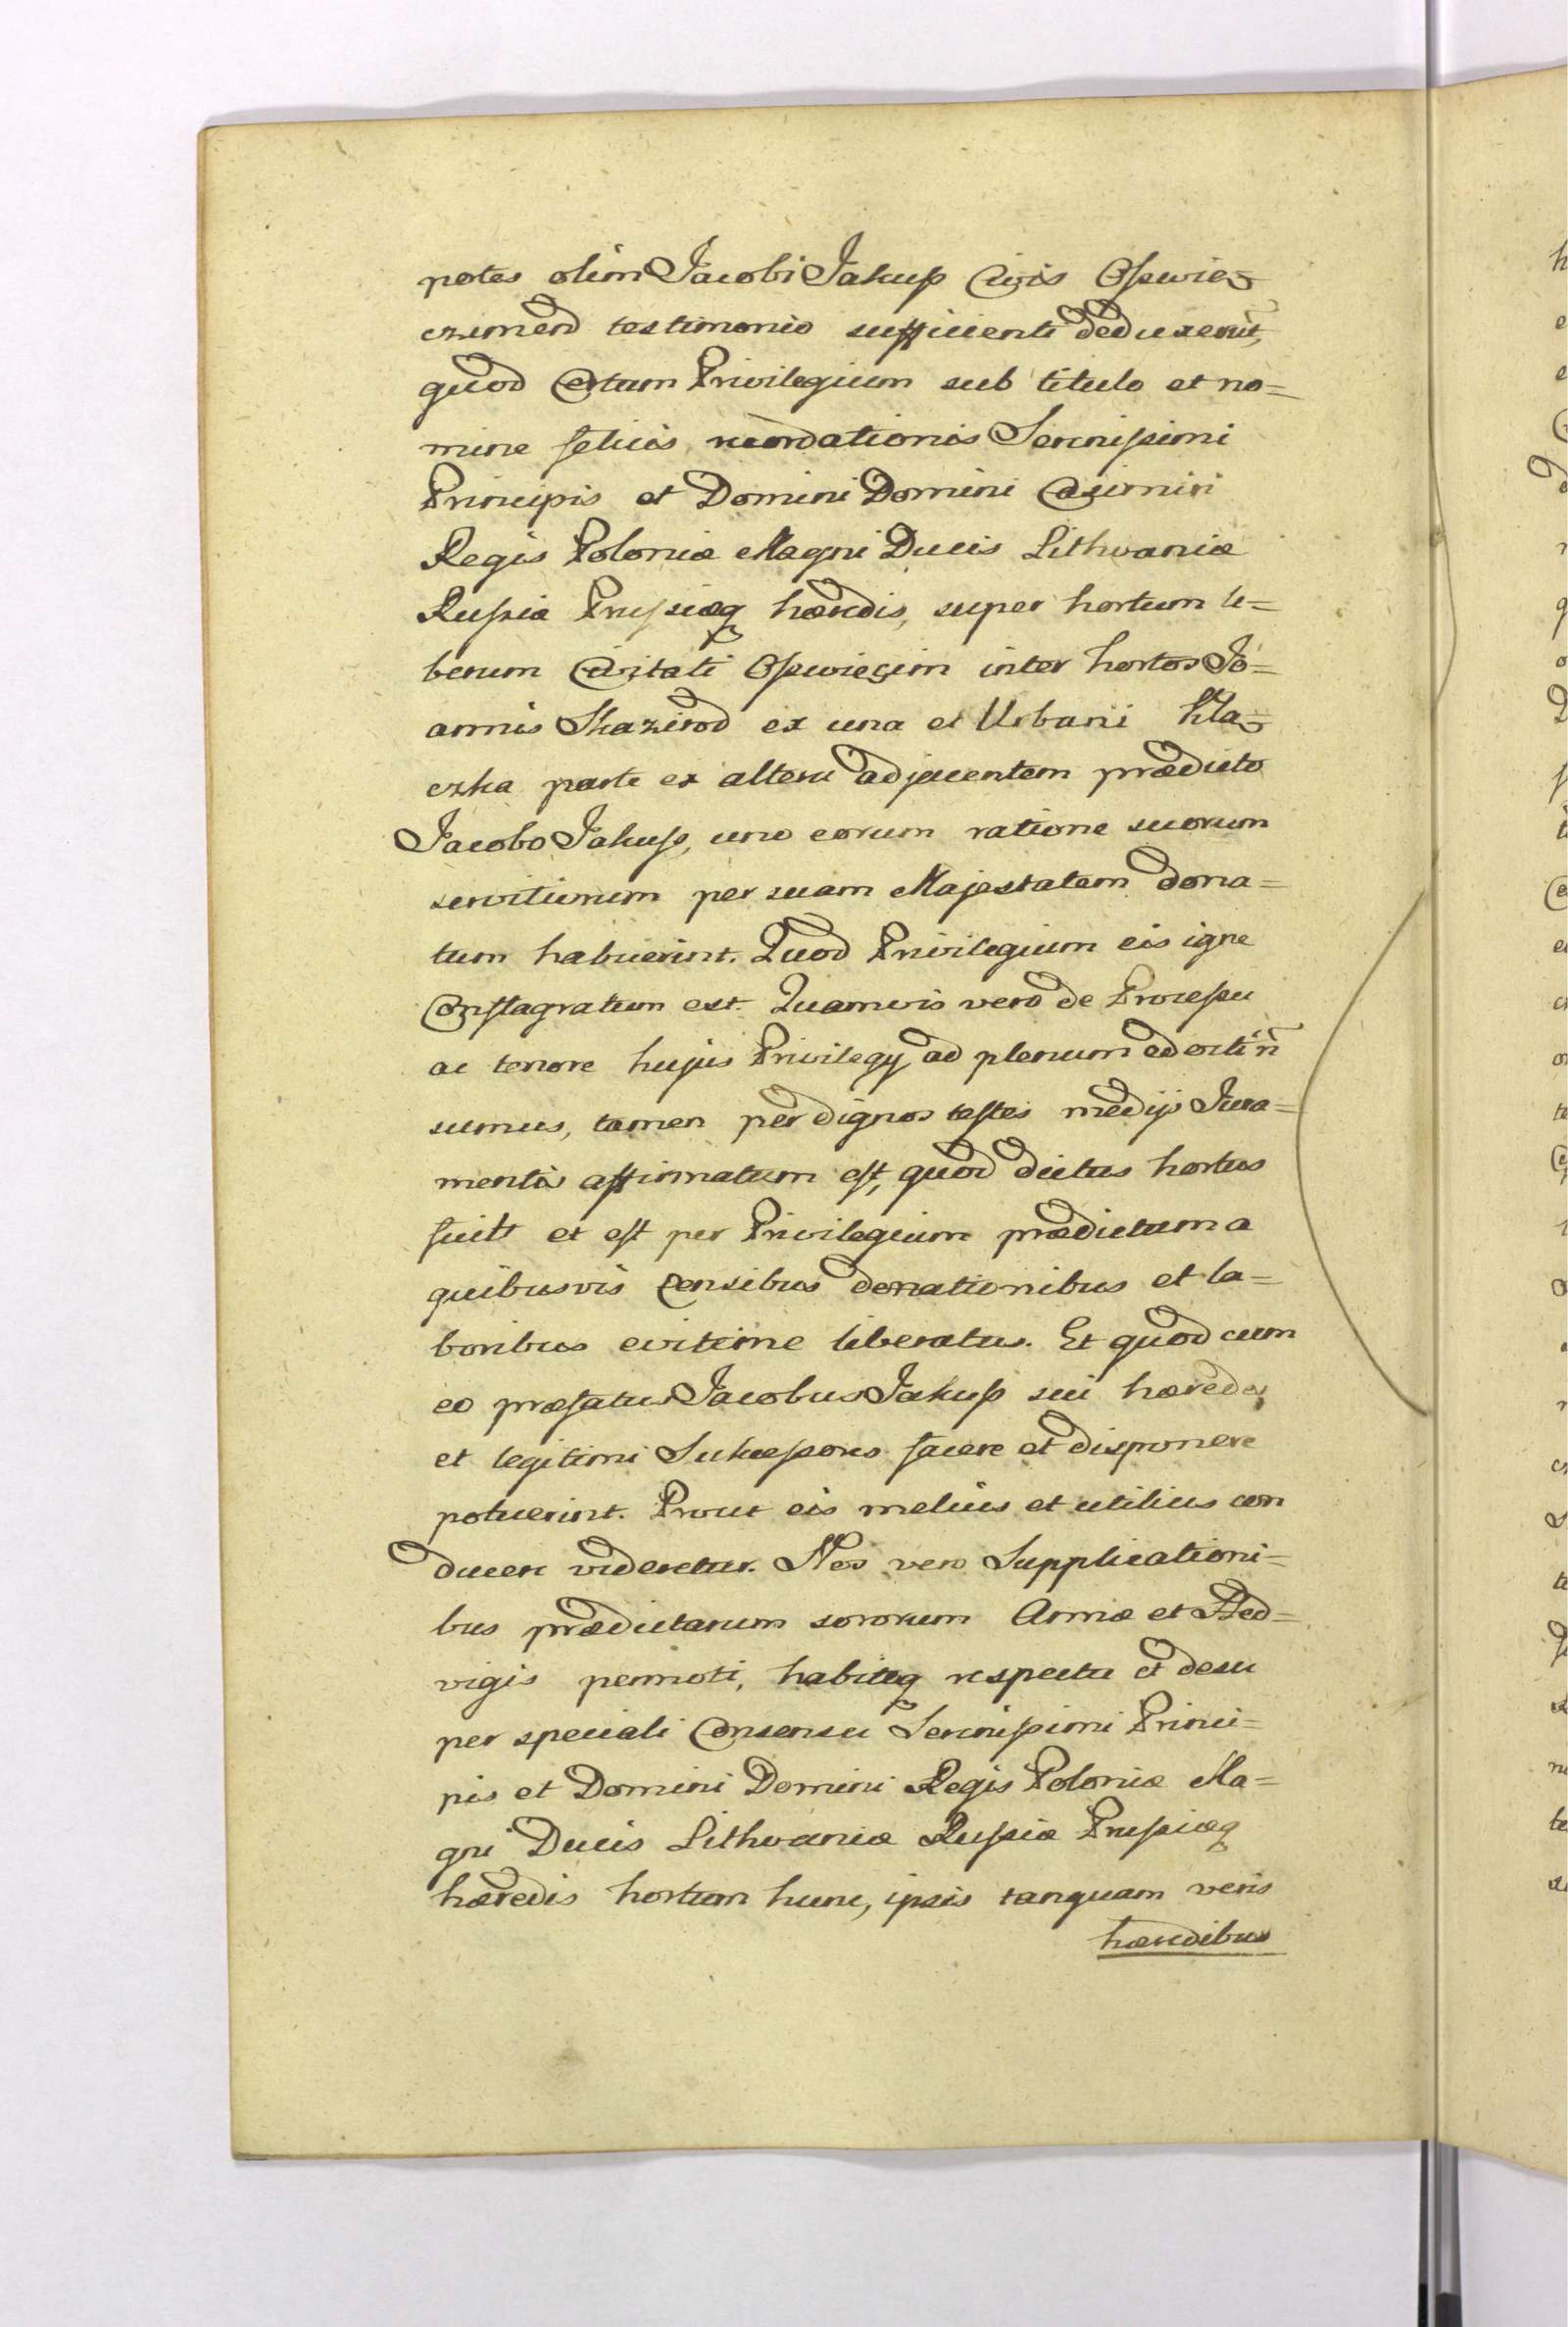 potes olim Jacobi Jakuſs Civis Oſswie=
czimens testimonio sufficienti deduxerūt,
quod Certum Privilegium sub titulo et no=
mine felicis recordationis Serenissimi
Principis et Domini Domini Casimiri
Regis Poloniæ Magni Ducis Lithvaniæ
Russiæ Prussiæq hæredis, super hortum li=
berum Civitati Oswięcim inter hortos Jo=
annis Skazirod ex una et Urbani Kla=
czka parte ex altera adjacentem prædicto
Jacobo Jakuſs, uno eorum ratione suorum
servitiorum per suam Majestatem dona=
tum habuerint. Quod Privilegium eis igne
Conflagratum est. Quamvis vero de Processu
ac tenore hujus Privilegy ad plenum edocti n̄
sumus, tamen per dignos testes medijs Jura=
mentis affirmatum est, quod dictus hortus
fuit et est per Privilegium prædictum a
quibusvis Censibus donationibus et la=
boribus eviterne liberatus. Et quod cum
eo præfatus Jacobus Jakuſs sui hæredes
et legitimi Successores facere et disponere
potuerint. Prout eis melius et utilius con
ducere videretur. Nos vero Supplicationi=
bus prædictarum sororum Annæ et Hed=
vigis permoti, habitoq respectu et desu
per speciali Consensu Serenissimi Princi=
pis et Domini Domini Regis Poloniæ Ma=
gni Ducis Lithvaniæ Russiæ Prussiæq
hæredis hortum hunc, ipsis tanquam veris
hæredibus